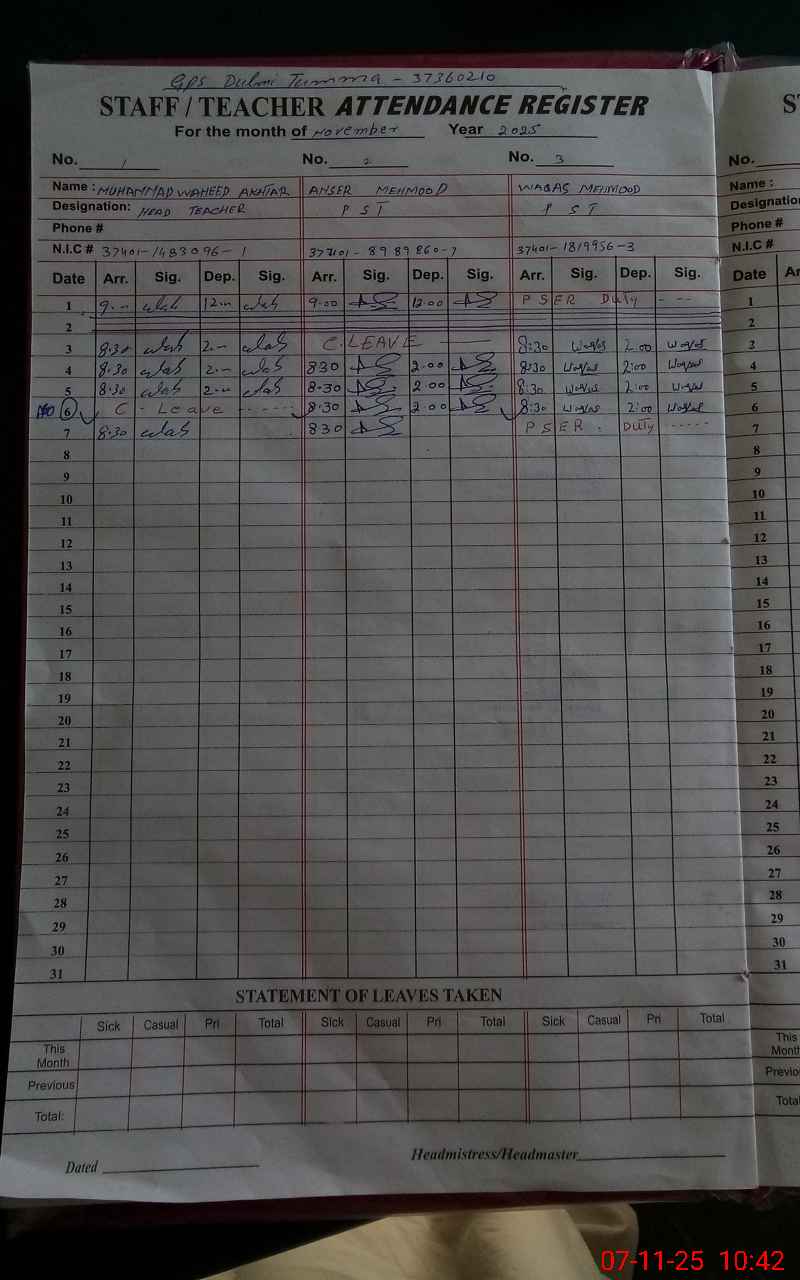 GPS Dulmi Tumma - 37360210
STAFF / TEACHER ATTENDANCE REGISTER
For the month of November Year 2025
No. 1 No. 2 No. 3 No.
Name : MUHAMMAD WAHEED AKHTAR ANSER MEHMOOD WAQAS MEHMOOD Name :
Designation: HEAD TEACHER P S T P S T Designatio
Phone # Phone #
N.I.C # 37401-1483096-1 37101-8989860-7 37401-1819956-3 N.I.C #
Date Arr. Sig. Dep. Sig. Arr. Sig. Dep. Sig. Arr. Sig. Dep. Sig. Date Ar
1 9.-- 12.-- 9.00 12.00 PSER Duty - -- 1
2 2
3 8.30 2.-- C.LEAVE 8:30 Waqas 2:00 Waqas 3
4 8.30 2.-- 830 2.00 8:30 Waqas 2:00 Waqas 4
5 8.30 2.-- 8.30 2.00 8:30 Waqas 2:00 Waqas 5
6 C - Leave ------ 8.30 2.00 8:30 Waqas 2:00 Waqas 6
7 8.30 830 PSER . Duty ------ 7
8 8
9 9
10 10
11 11
12 12
13 13
14 14
15 15
16 16
17 17
18 18
19 19
20 20
21 21
22 22
23 23
24 24
25 25
26 26
27 27
28 28
29 29
30 30
31 31
STATEMENT OF LEAVES TAKEN
Sick Casual Pri Total Sick Casual Pri Total Sick Casual Pri Total
This Month This Month
Previous Previo
Total: Tota
Dated Headmistress/Headmaster
07-11-25 10:42